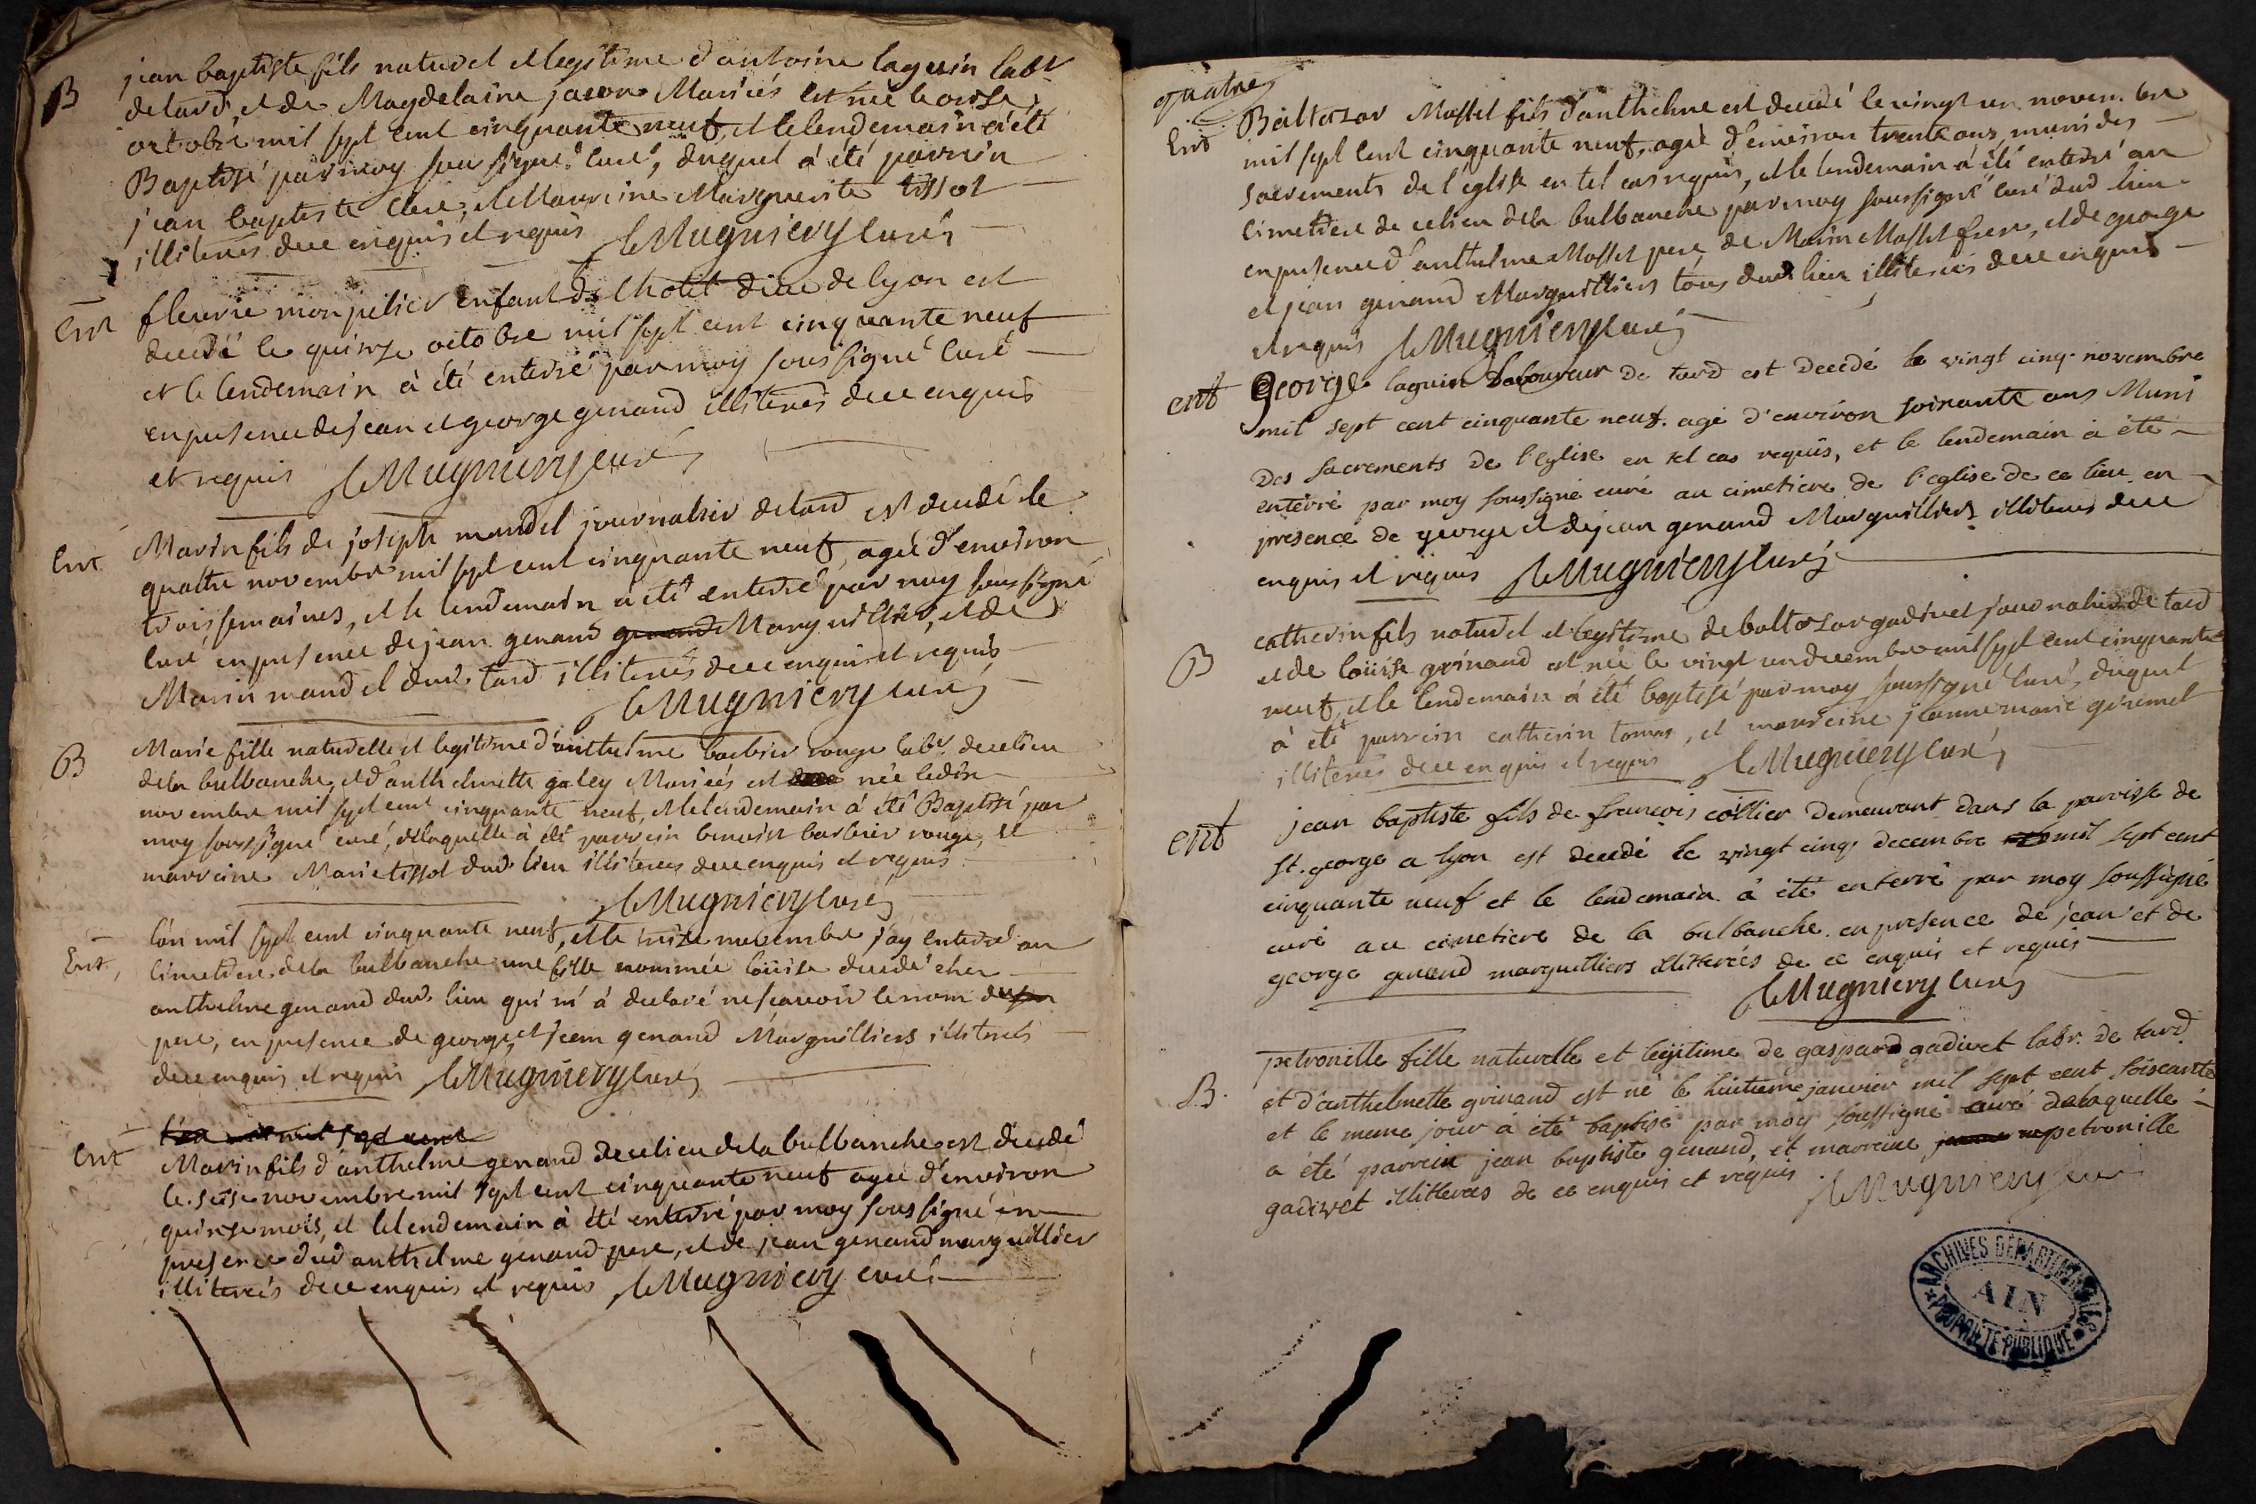 B jean baptiste fils naturel et legitime d'antoine laguin labr
de tard et de Magdelaine jacon Mariés est né le onze
octobre mil sept cent cinquante neuf, et le lendemain a été
Baptisé par moy sous signé curé, duquel à été parrein
jean baptiste et Marreine Marguerite tissot
illiterés de ce enquis et requis Mugniery curé
Ent fleurie monpelier enfant de l'hotel dieu de lyon est
decedé le quinze octobre mil sept cent cinquante neuf
et le lendemain à été enterré par moy sous signé curé
en presence de jean et george genand illiterés de ce enquis
et requis Mugniery curé
Ent Marin fils de joseph mandel journalier de tard est decedé le
quatre novembre mil sept cent cinquante neuf, agé d'environ
trois semaines, et le lendemain a été enterré par moy sous signé
curé en presence de jean genand Marguillier, et de
Marin mandel dud. tard illiterés de ce enquis et requis
Mugniery curé
B Marie fille naturelle et legitime d'anthelme barbier rouge labr. de ce lieu
de la bulbanche, et d'anthelmette galey Mariés est née le dix
novembre mil sept cent cinquante neuf, et le lendemain à été Baptisé par
moy soussigné curé, de laquelle à été parrein benoist barbier rouge, et
marreine Marie tissot dud. lieu illiterés de ce enquis et requis
Mugniery curé
Ent, l'an mil sept cent cinquante neuf, et le treize novembre j'ay enterré au
cimetiere de la bulbanche une fille nommée loüise decedé chez
anthelme genand dud. lieu qui m'à declaré ne scavoir le nom du
pere, en presence de george et jean genand Marguilliers illiterés
de ce enquis et requis Mugniery curé
l'an mil sept cent
Ent Marin fils d'anthelme genand de ce lieu de la bulbanche est decedé
le seize novembre mil sept cent cinquante neuf agé d'environ
quinze mois, et le lendemain à été enterré par moy sous signé en
presence dud. anthelme genand pere, et de jean genand marguillier
illiterés de ce enquis et requis Mugniery curé
quatre
Ent Baltazar Mosset fils d'anthelme est decedé le vingt un novembre
mil sept cent cinquante neuf, agé d'environ trente ans, muni des
sacrements de l'eglise en tel cas requis, et le lendemain à été enterré au
cimetiere de ce lieu de la bulbanche par moy soussigné curé dud. lieu
en presence d'anthelme Mosset pere, de Marin Mosset frere, et de george
et jean genand Marguilliers tous dud. lieu illiterés de ce enquis
et requis Mugniery curé
ent George laguin Laboureur de tard est decedé le vingt cinq novembre
mil sept cent cinquante neuf. agé d'environ soixante ans Muni
Des sacrements de l'eglise en tel cas requis, et le lendemain à été
enterré par moy soussigné curé au cimetiere de l'eglise de ce lieu en
presence de george et de jean genand Marguilliers illiterés de ce
enquis et requis Mugniery curé
B catherin fils naturel et legitime de baltazar gadivet journalier de tard
et de loüise grinand est né le vingt un decembre mil sept cent cinquante
neuf, et le lendemain à été baptisé par moy soussigné curé, duquel
à été parrein catherin tomas, et marreine jeanne marie
illiterés de ce enquis et requis Mugniery curé
ent jean baptiste fils de françois collier demeurant dans la parroisse de
st. george a lyon est decedé le vingt cinq decembre mil sept cent
cinquante neuf et le lendemain à été enterré par moy soussigné
curé au cimetiere de la bulbanche en presence de jean et de
george genand marguilliers illiterés de ce enquis et requis
Mugniery curé
B. petronille fille naturelle et legitime de gaspard gadivet labr. de tard
et d'anthelmette grinand est né le huitieme janvier mil sept cent soiscante
et le meme jour à été baptisé par moy soussigné curé de laquelle
a été parrein jean baptiste genand, et marreine petronille
gadivet illiterées de ce enquis et requis Mugniery curé
ARCHIVES DÉPARTEMENTALES
AIN
PROPRIÉTÉ PUBLIQUE